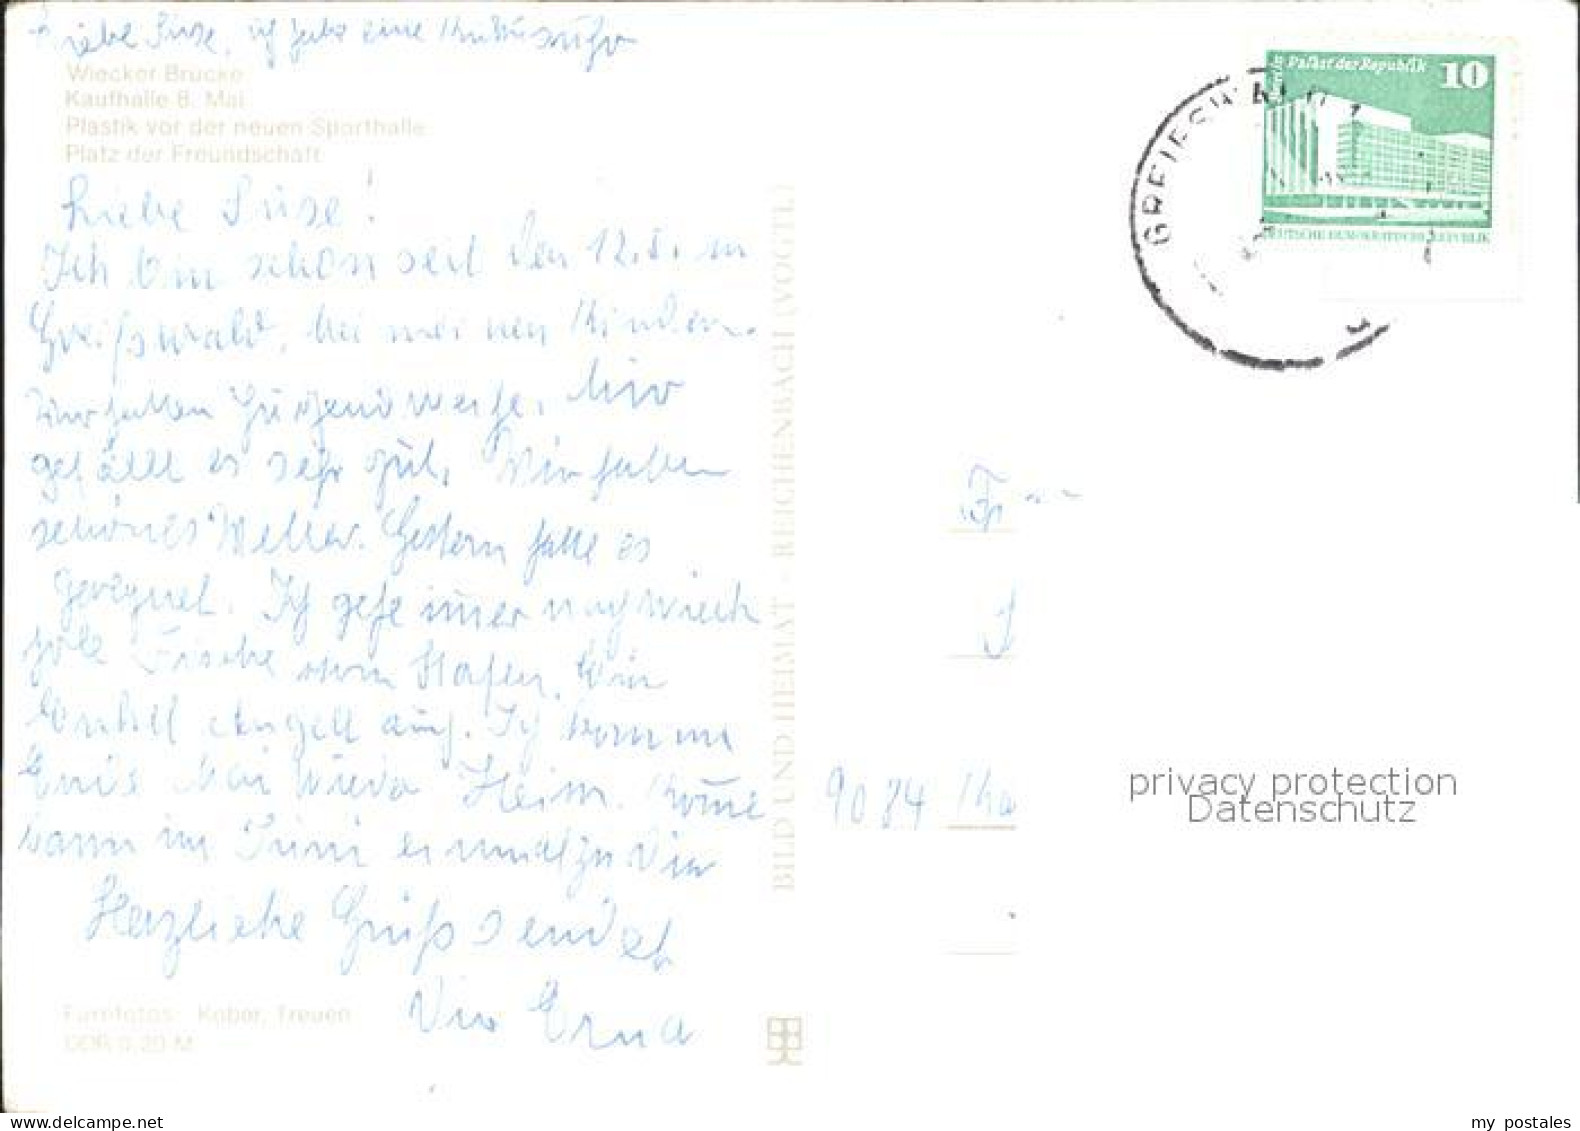 Liebe Suse, ich habe eine
Wiecker Brücke
Kaufhalle 8. Mai
Plastik vor der neuen Sporthalle
Platz der Freundschaft
Liebe Suse!
Ich bin schon seit den 12.5. in
Greifswald, bei meinen Kindern.
Wir haben Mir
gefällt es sehr gut. Wir haben
schönes Wetter. Gestern hatte es
geregnet. Ich gehe immer nach Wieck
hole Fische vom Hafen.
Enkel Angelt auch. Ich komme
Ende Mai wieder Heim. Komme
dann im Juni einmal zu Dir
Herzliche Grüße sendet
Dir Erna
Farbfotos: Kober, Treuen
DDR 0,20 M
BILD UND HEIMAT · REICHENBACH (VOGTL)
GREIFSWALD 1
Berlin Palast der Republik 10
DEUTSCHE DEMOKRATISCHE REPUBLIK
Fr
9084
privacy protection
Datenschutz
https://www.delcampe.net
my postales